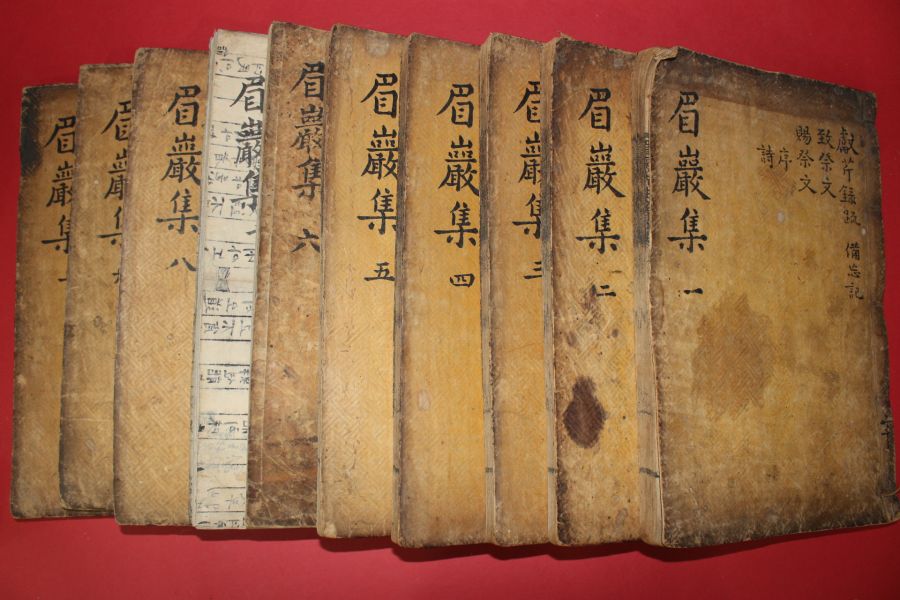 眉巖集 一
獻芹錄跋 備忘記
致祭文
賜祭文
序
詩
眉巖集 二
眉巖集 三
眉巖集 四
眉巖集 五
眉巖集 六
眉巖集
眉巖集 八
眉巖集
眉巖集